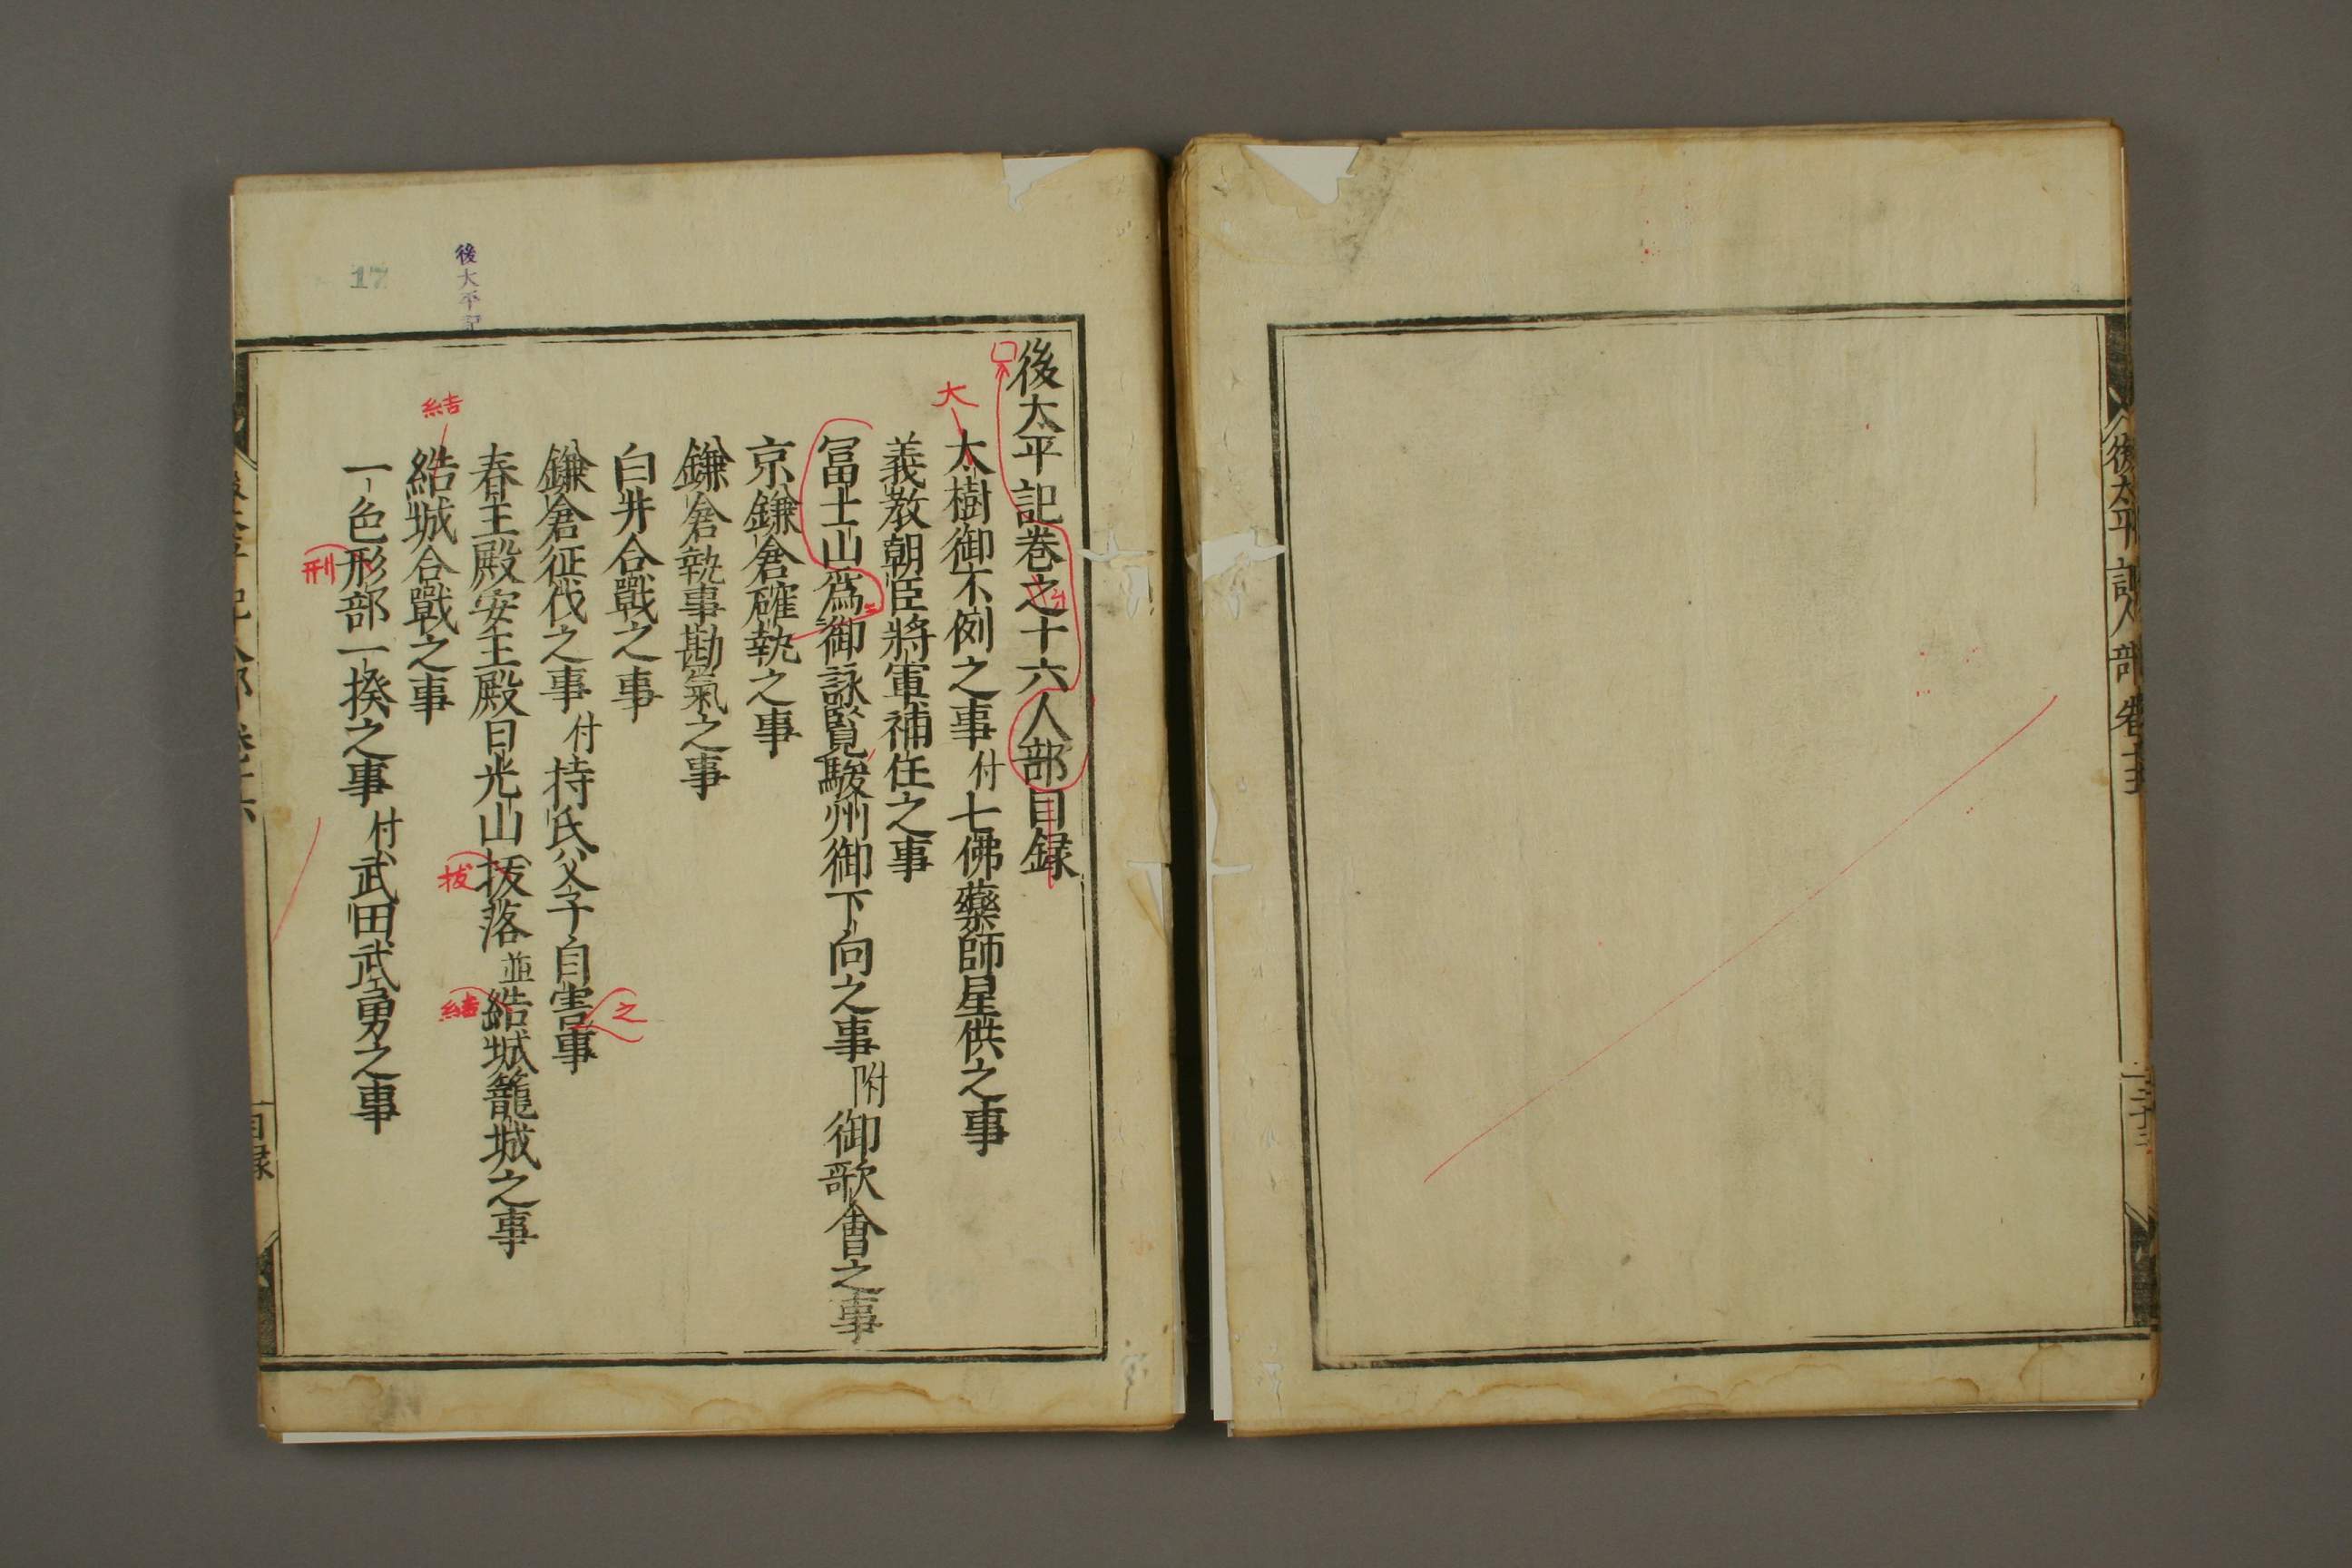 後太平記人部 卷十五
後太平記卷之十六人部目録
太樹御不例之事付七佛藥師星供之事
大
義教朝臣將軍補任之事
冨士山爲御詠覧駿州御下向之事附御歌會之事
京鎌倉確執之事
鎌倉執事勘氣之事
白井合戰之事
鎌倉征伐之事付持氏父子自害事
之
春王殿安王殿日光山拔落並結城籠城之事
拔
結
結城合戰之事
結
一色形部一揆之事付武田武勇之事
刑
後大平記
17
目録